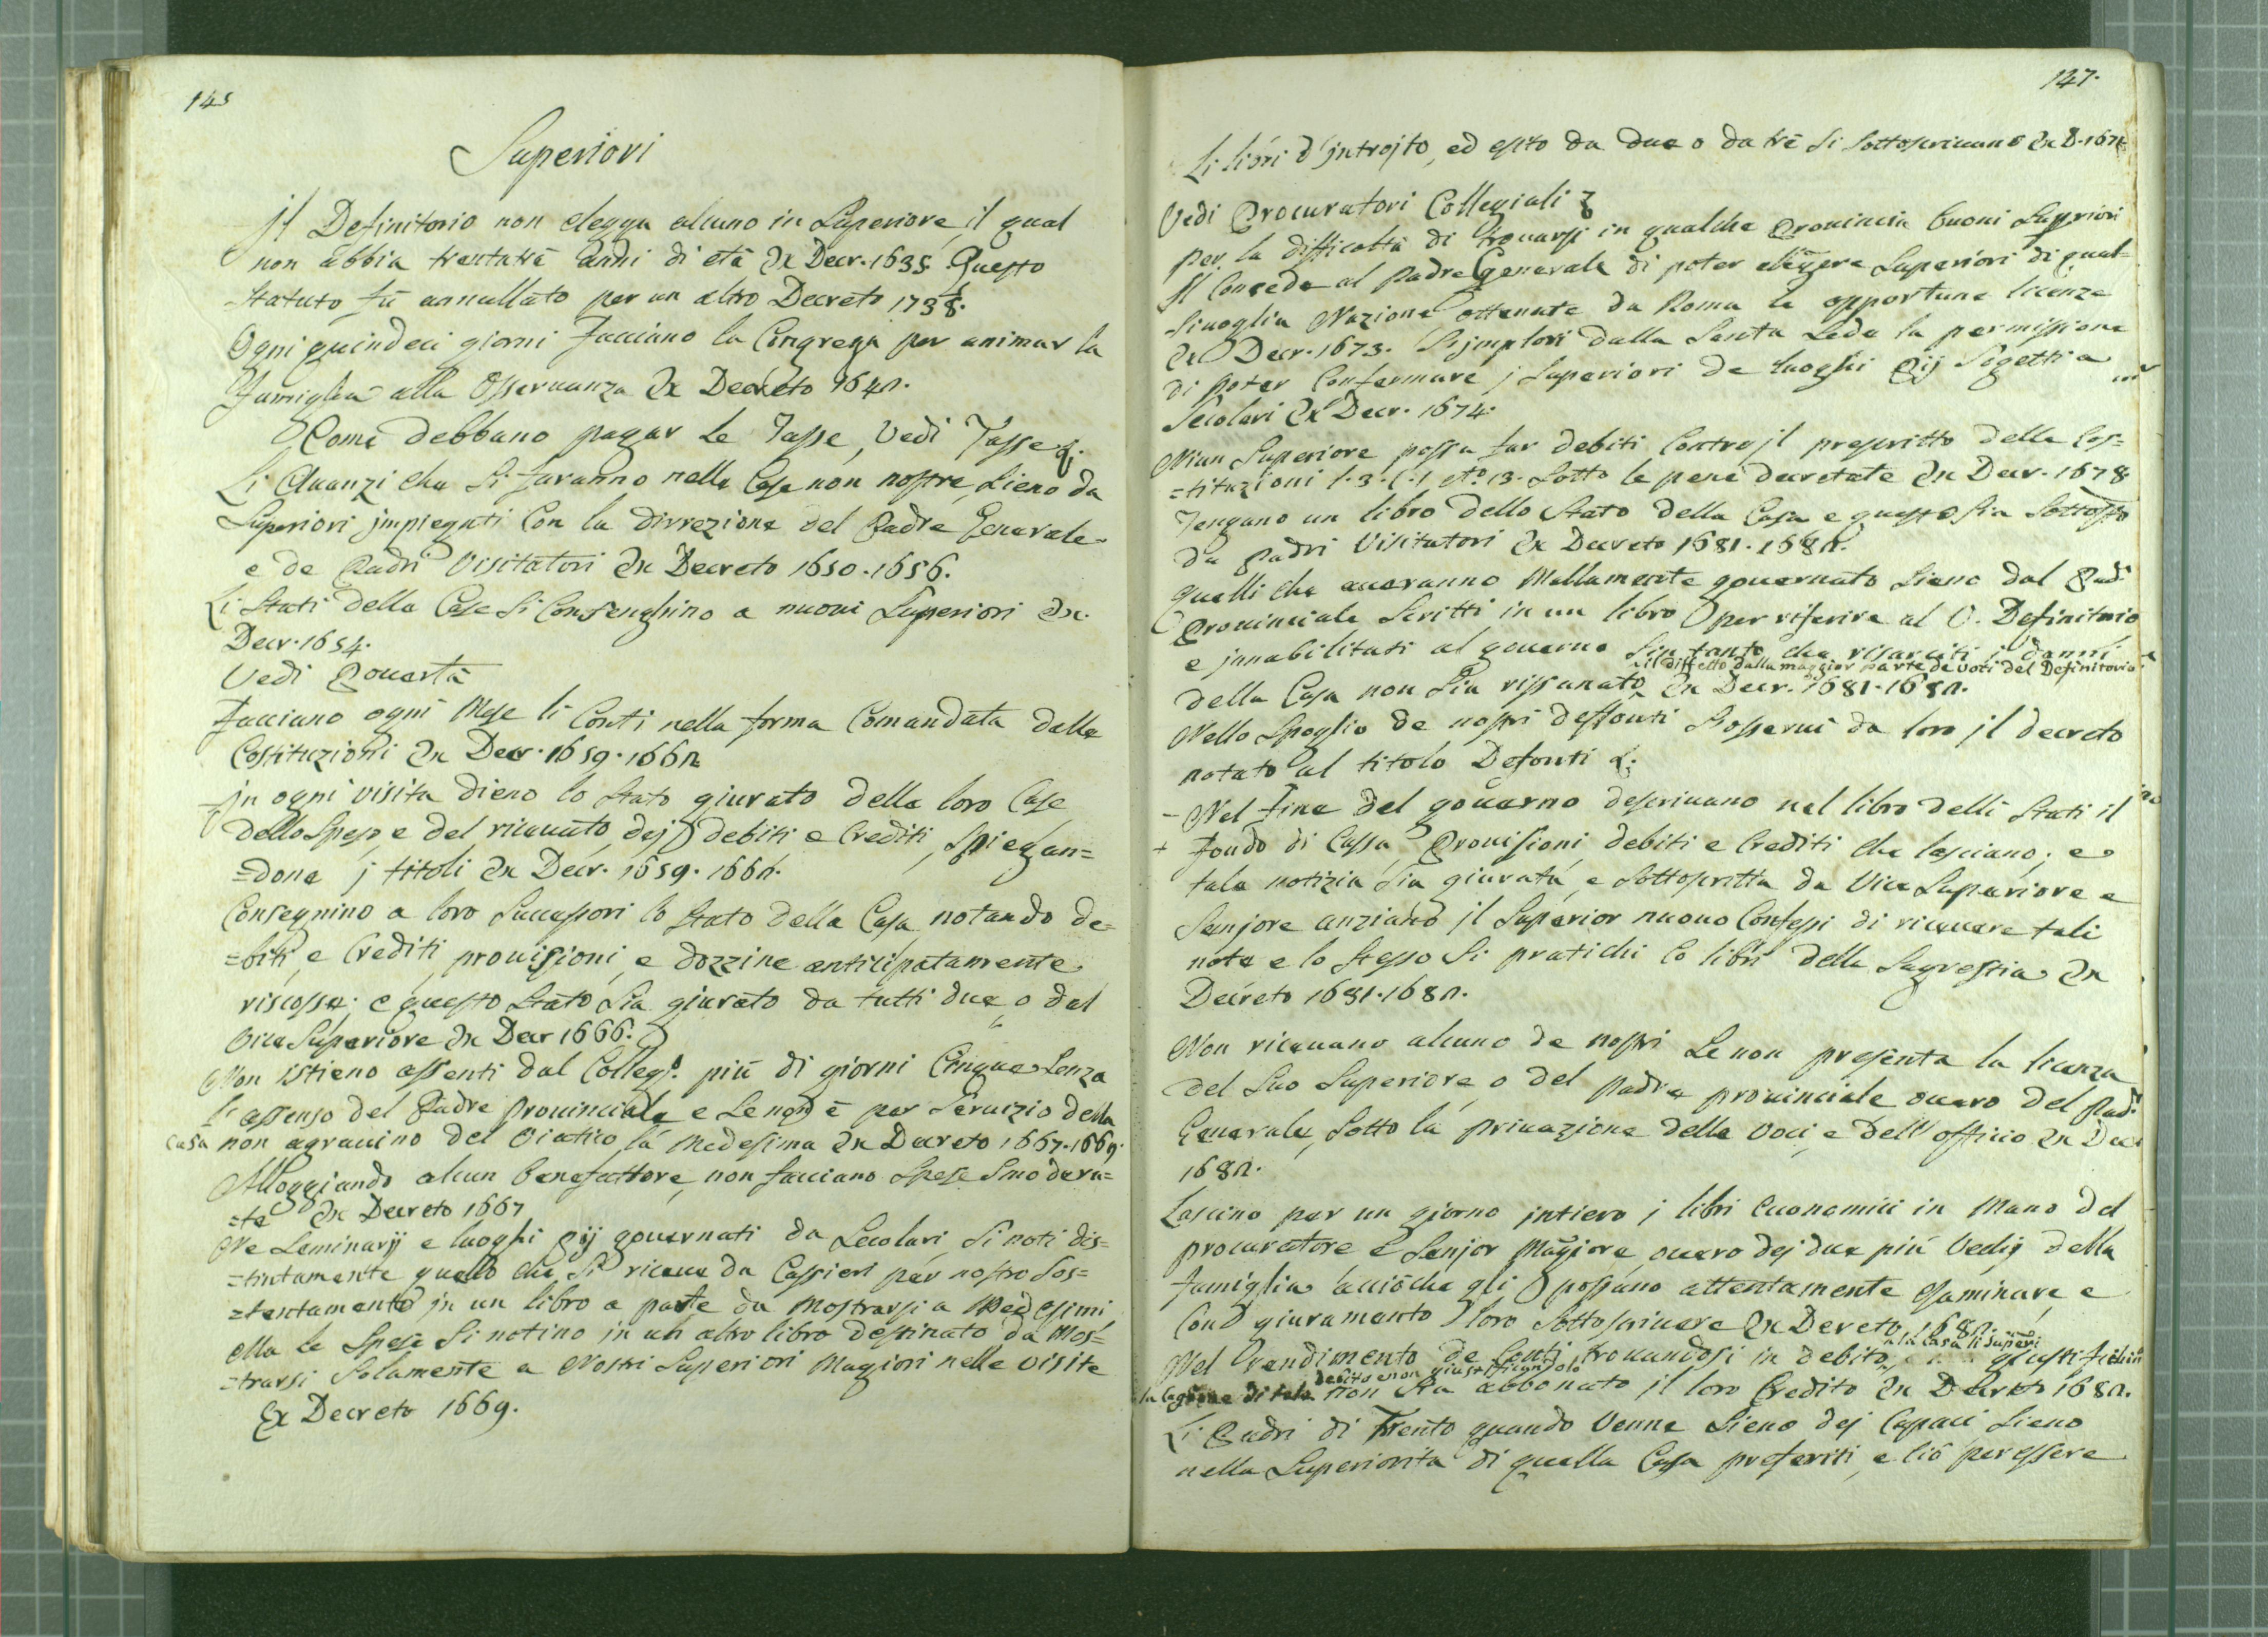 145
Superiori
jl Definitorio non elegga alcuno in Superiore, il qual
non abbia trentatrè anni di età Ex Decr. 1635. Questo
Statuto fù annullato per un altro Decreto 1738.
Ogni quindeci giorni facciano la Congrega per animar la
famiglia alla Osservanza Ex Decreto 1642.
Come debbano pagar le Tasse, Vedi Tasse &.
Li Avanzi che si faranno nelle Case non nostre, sieno da
Superiori jmpiegati con la dirrezione del Padre Generale
e de Padri Visitatori Ex Decreto 1650. 1656.
Li Stati delle Case si Consenghino a nuovi Superiori Ex.
Decr. 1654.
Vedi Povertà
Facciano ogni Mese li Conti nella forma Comandata dalle
Costituzioni Ex Decr. 1659. 1662
jn ogni visita dieno lo Stato giurato delle loro Case
dello speso, e del ricevuto, dej debiti, e Crediti, spiegan=
=done j titoli Ex Decr. 1659. 1662.
Consegnino a loro Successori lo Stato della Casa, notando de=
=biti, e Crediti, provisioni, e dozzine anticipatamente
riscosse; e questo Stato sia giurato da tutti due, o dal
Vice Superiore Ex Decr 1666.
Non istieno assenti dal Colleg.o più di giorni Cinque senza
l'assenso del Padre Provinciale e se non è per servizio della
Casa non agravino del Viatico la medesima Ex Decreto 1667. 1669.
Alloggiando alcun benefattore, non facciano spese smodera=
=te Ex Decreto 1667
Ne Seminarij e luoghi pij governati da Secolari, si noti dis=
=tintamente quello che si riceve da Cassieri per nostro sos=
=tentamento jn un libro a parte da mostrarsi a Medesimi
Ma le spese si notino in un altro libro destinato da Mos=
=trarsi solamente a Nostri Superiori Magiori nelle visite
Ex Decreto 1669.
147.
Li libri d'jntrojto, ed esito da due o da trè si sottoscrivano Ex D. 1671
Vedi Procuratori Collegiali
Per la difficoltà di trovarsi in qualche Provincia buoni Supriori
Si Concede al Padre Generale di poter elegere Superiori di qual-
sivoglia Nazione ottenute da Roma le opportune licenze
Ex Decr. 1673. Si jmplori dalla Santa Sede la permissione
di poter Confermare j Superiori de luoghi Pij Sogetti a
Secolari Ex Decr. 1674.
Niun Superiore possa far debiti Contro jl prescritto delle Cos=
=tituzioni l. 3. C. 1 n.o 13. Sotto le pene decretate Ex Decr. 1678
Tengano un libro dello Stato della Casa e questo sia sottosto
da Padri Visitatori Ex Decreto 1681. 1682.
Quelli che averanno Mallamente governato sieno dal Pad.
Provinciale scritti in un libro per riferire al V. Definitorio
e jnnabilitati al governo sin tanto che risarciti j danni
il diffetto dalla maggior parte de voti del Definitorio
della Casa non sia rissanato Ex Decr. 1681. 1682.
Nello spoglio de nostri deffonti s'osservi da loro jl decreto
notato al titolo Defonti &.
Nel fine del governo descrivano nel libro delli Stati il
fondo di Cassa, Provisioni, debiti e Crediti che lasciano; e
tale notizia sia giurata, e sottoscritta da Vice Superiore e
Senjore anziano jl Superior nuovo Confessi di ricevere tali
note e lo stesso si pratichi Co libri della Sagrestia Ex
Decreto 1681. 1682.
Non ricevano alcuno de nostri se non presenta la licenza
del suo Superiore, o del Padre provinciale overo del Pad.
Generale, sotto la privazione della Voce, e dell'officio Ex Dec
1682.
Lascino per un giorno jntiero j libri economici in Mano del
procuratore e Senjor Maggiore, overo dej due più Vechj della
famiglia acciò che gli possano attentamente esaminare, e
Con giuramento loro sottoscrivere Ex Dereto 1682.
a la Casa li superi
Nel rendimento de Conti trovandosi in debito
debito e non giustificandolo
la cagione di tale non sia abbonato il loro Credito Ex Decreto 1682.
Li Padri di Trento quando venne sieno dej Capaci sieno
nella Superiorità di quella Casa preferiti, e ciò per essere